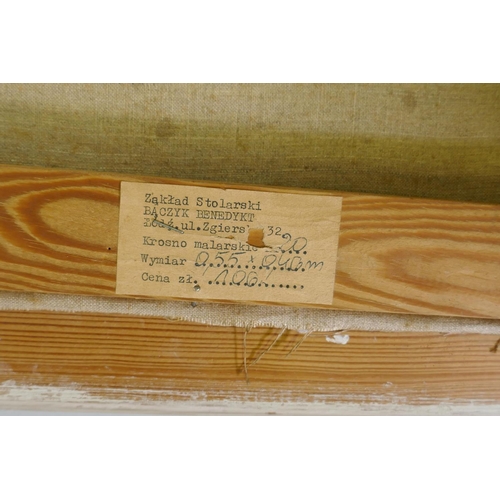 Zakład Stolarski
BĄCZYK BENEDYKT
Łódź.ul.Zgiers 32
Krosno malarskie 20
Wymiar 0,55 x 0,46 m
Cena zł. 106,-